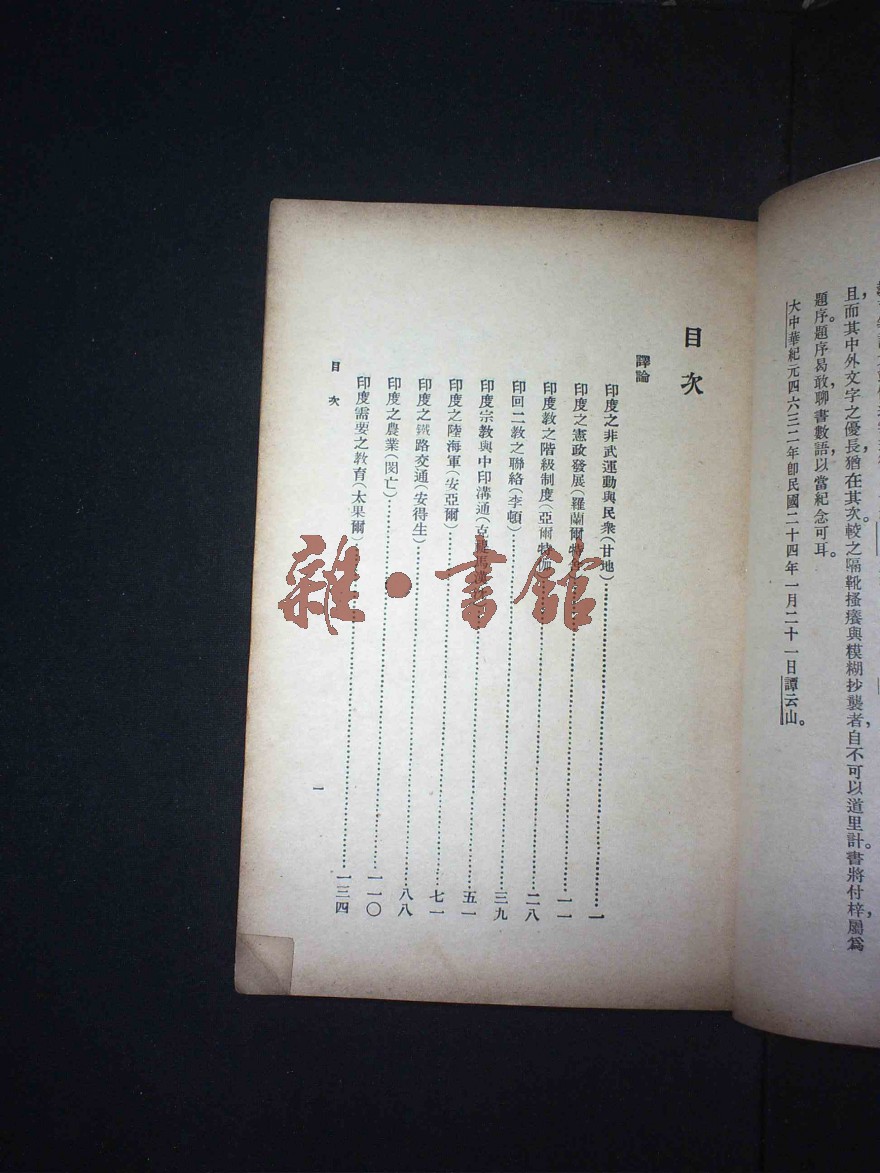 且而其中外文字之優長猶在其次較之隔靴搔癢與模糊抄襲者，自不可以道里計。書將付梓，屬為
題序。題序曷敢，聊書數語，以當紀念可耳。
大中華紀元四六三二年即民國二十四年一月二十一日譚云山。
目次
譯論
印度之非武運動與民衆（甘地）……一
印度之憲政發展（羅蘭爾……一一
印度教之階級制度（亞爾特……二八
印回二教之聯絡（李頓）……三九
印度宗教與中印溝通……五一
印度之陸海軍（安亞爾）……七一
印度之鐵路交通（安得生）……八八
印度之農業（閔亡）……一一〇
印度需要之教育（太果爾）……一三四
目次
一
雜·書館